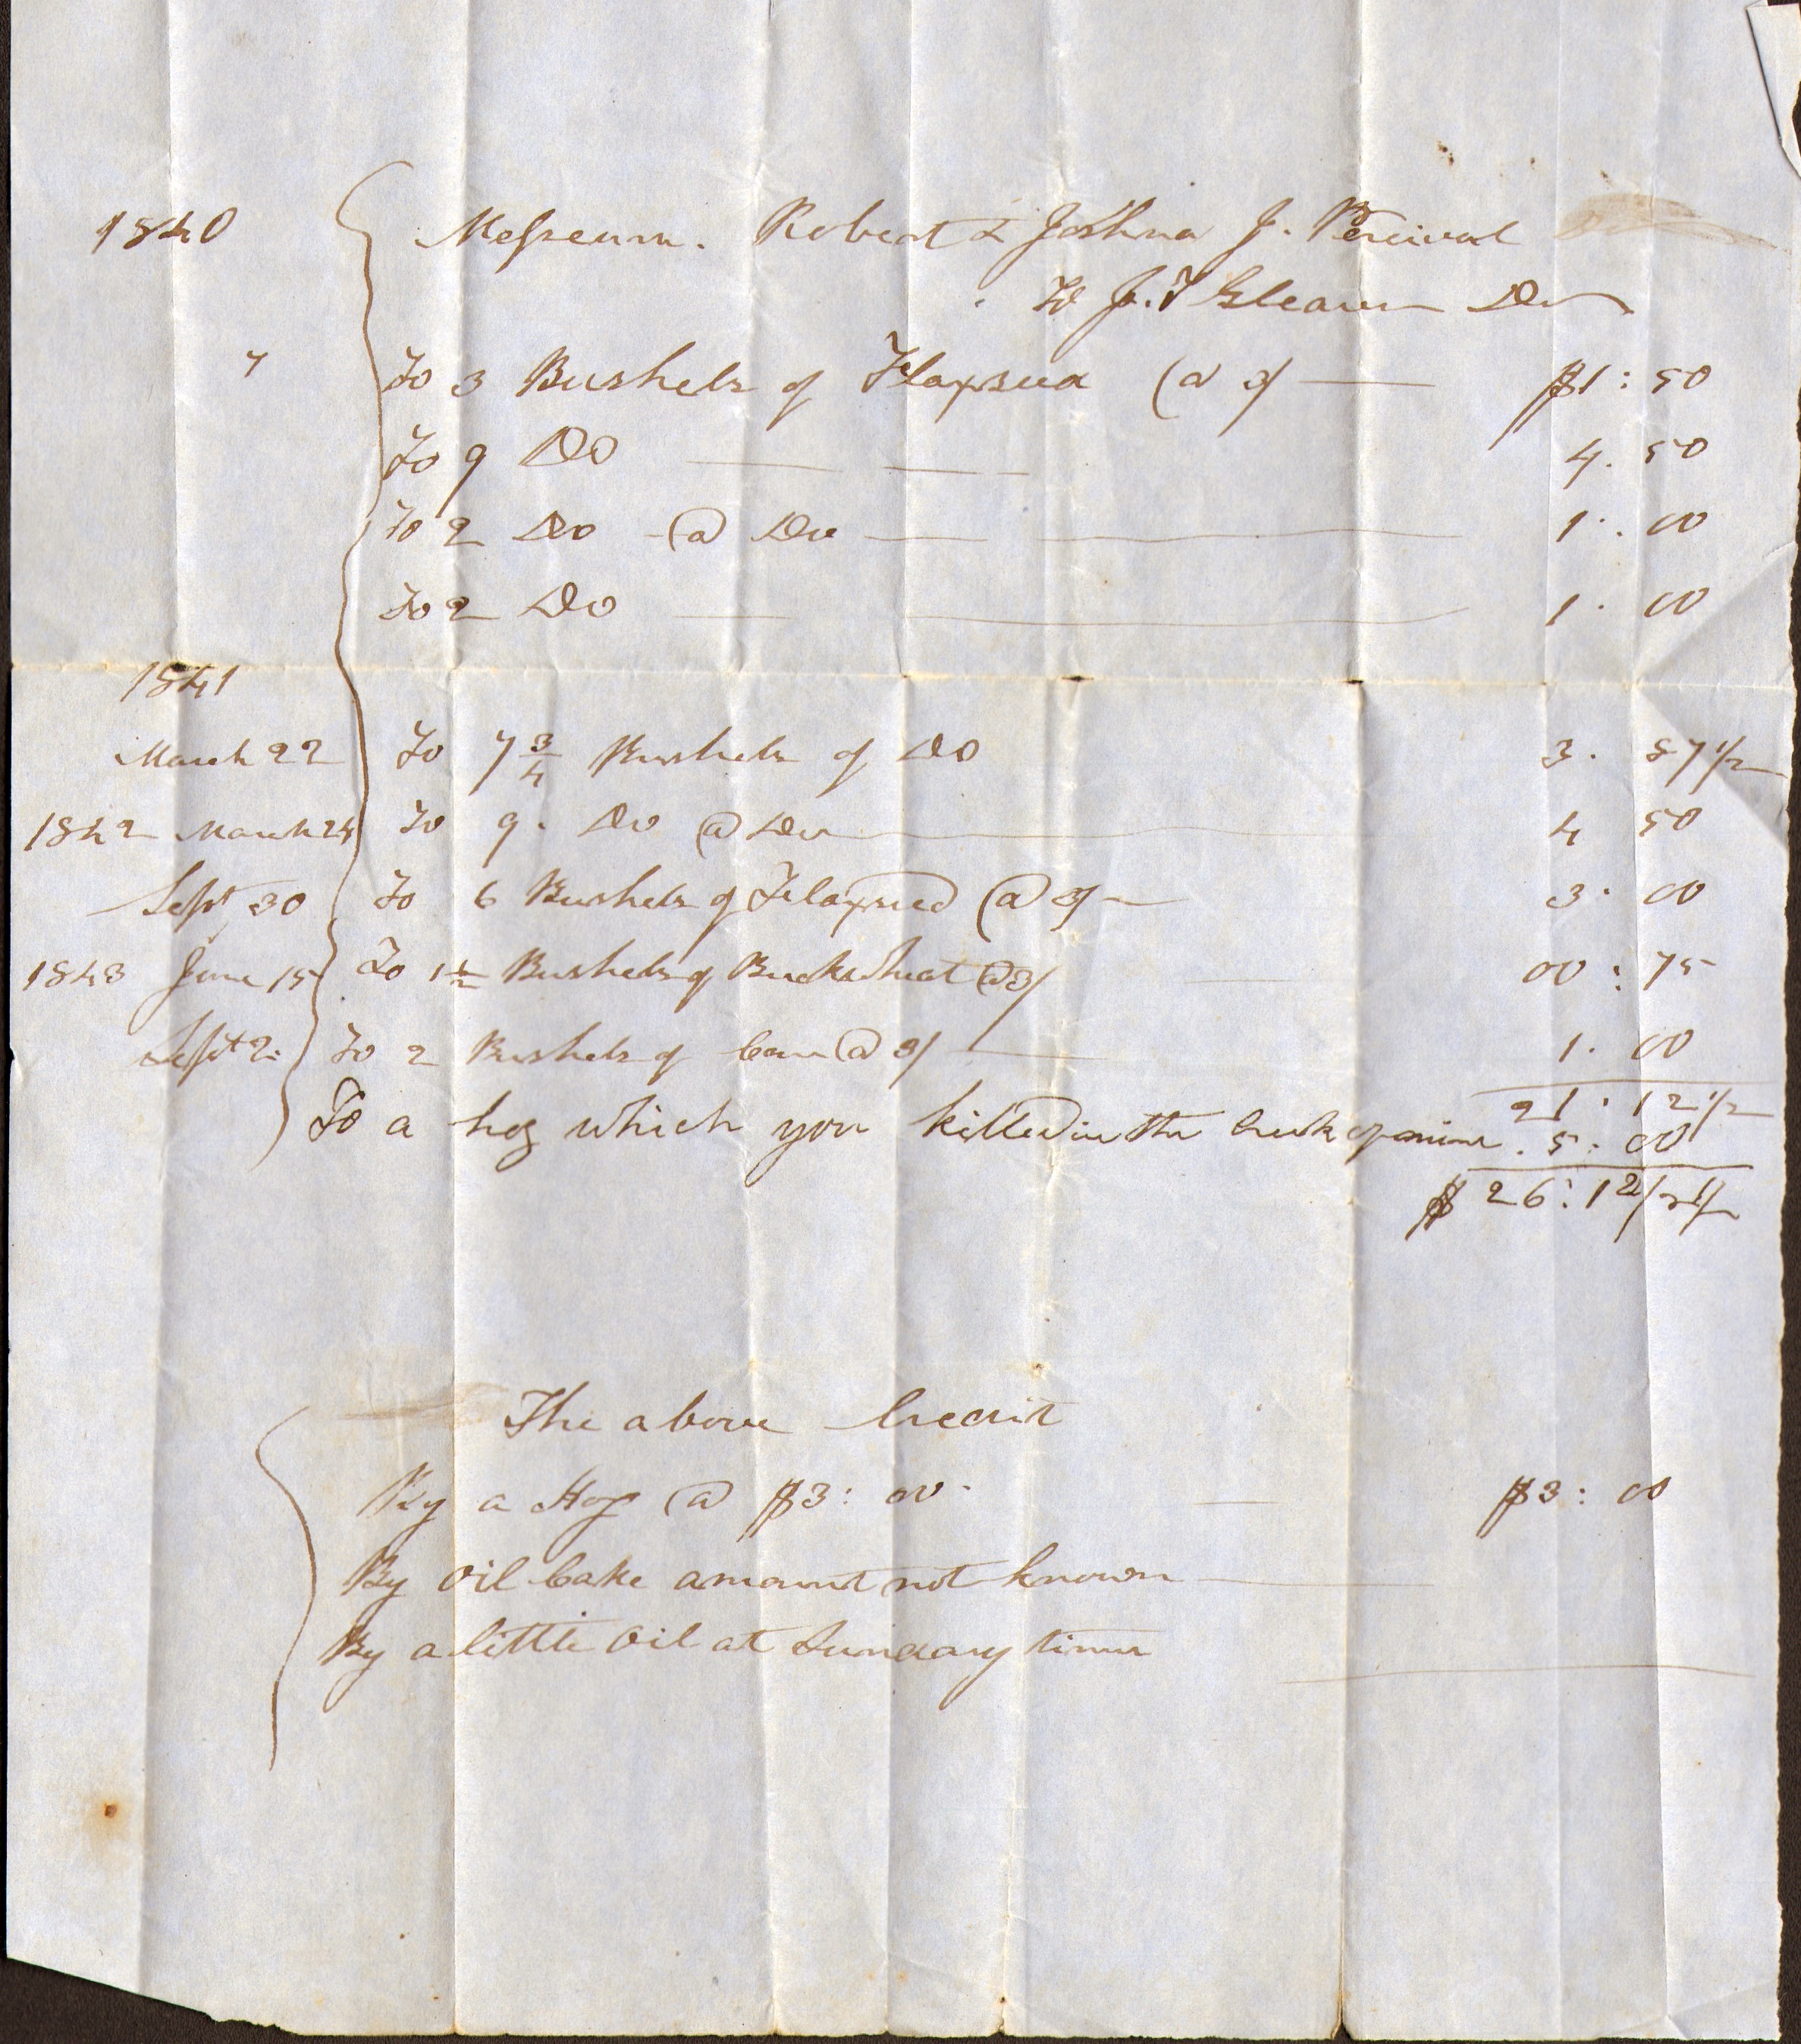 1840 Messeurs. Robert & Joshua J. Percival
To J. T Gleaves Dr
To 3 Bushels of Flaxseed (a 3/ $1:50
To 9 Do 4.50
To 2 Do @ Do 1.00
To 2 Do 1.00
1841
March 22 To 7 3/4 Bushels of Do 3.87 1/2
1842 March 24 To 9. Do @ Do 4 50
Sept 30 To 6 Bushels of Flaxseed @ 3/ 3.00
1843 June 15 To 1 1/2 Bushels of Buckwheat @ 3/ 00:75
Sept 2. To 2 Bushels of Corn @ 3/ 1.00
21.12 1/2
To a hog which you killed in the Creek of mine . 5:00
$ 26:12 1/2
The above Credit
By a Hog @ $3:00. $3:00
By Oil Cake amount not known
By a little Oil at Sundary times